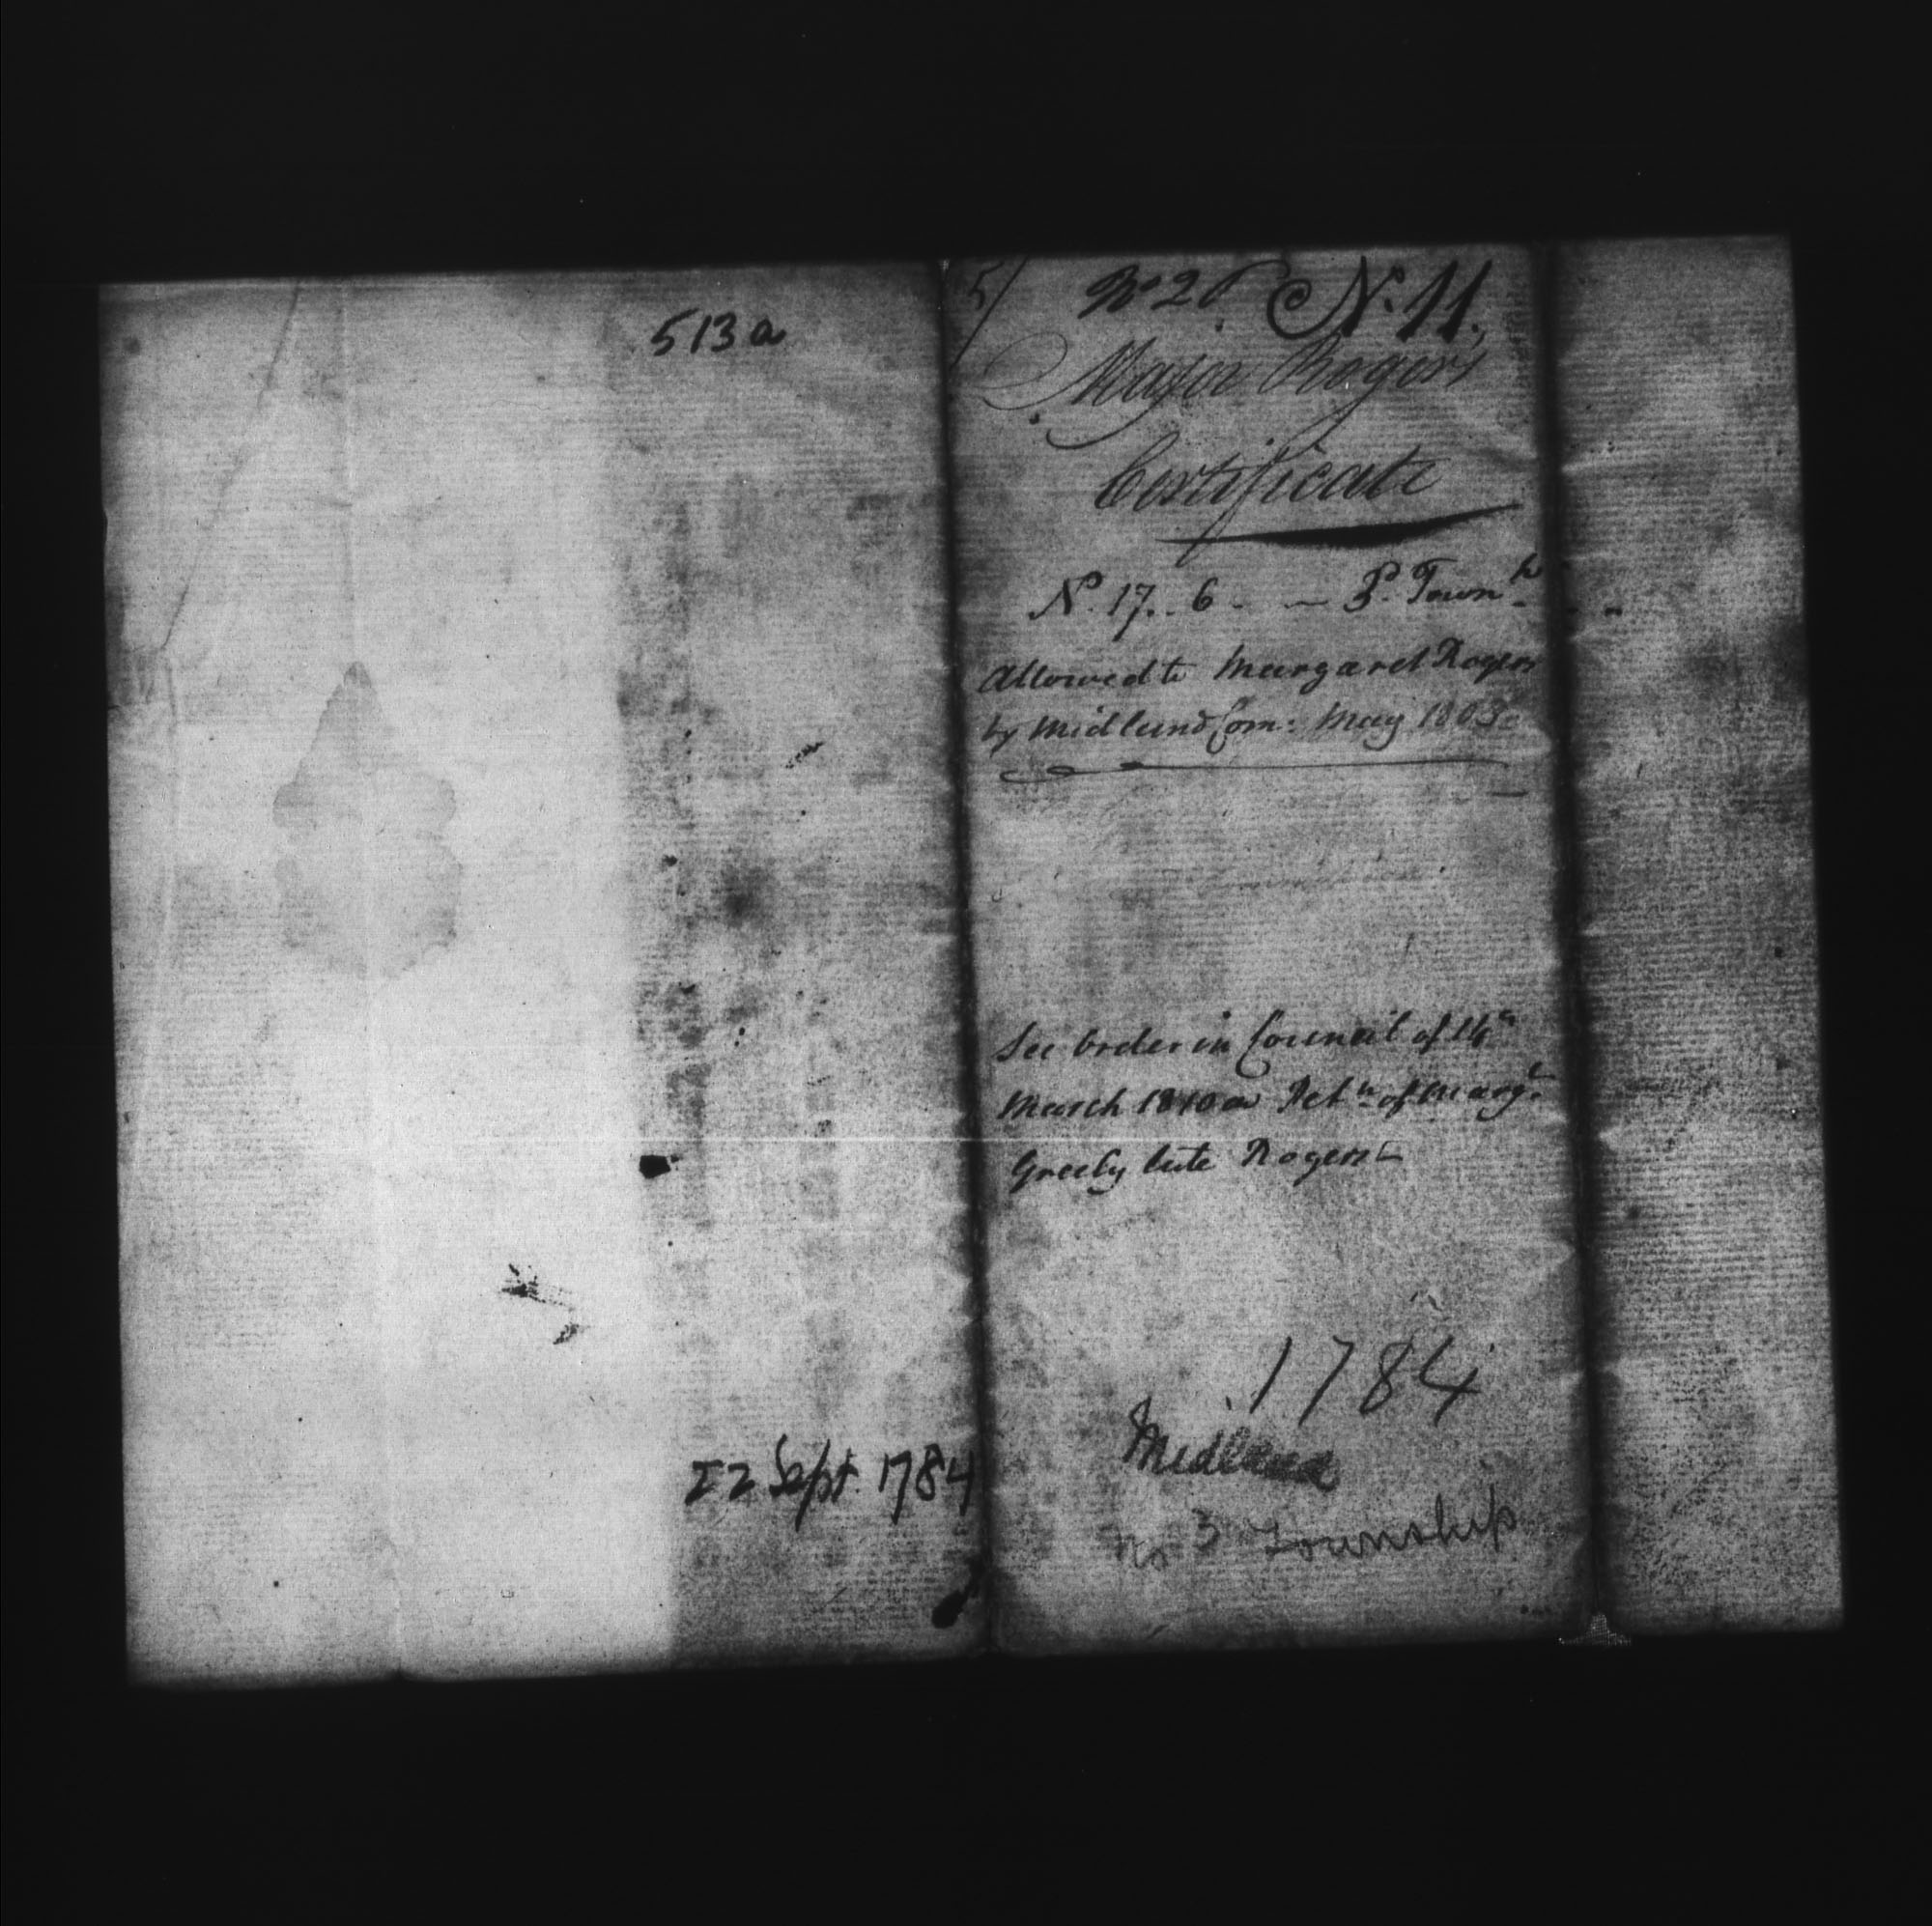 513a
22 Sept. 1784
5/
No 20 No. 11.
Major Rogers
Certificate
No. 17. . 6 - - 3d. Townh
Allowed to Margaret Rogers
by Midland Com: May 1803
See Order in Council of 14th
March 1810 a Petn of Margt
Greely late Rogers
1784
Midland
No 3 Township